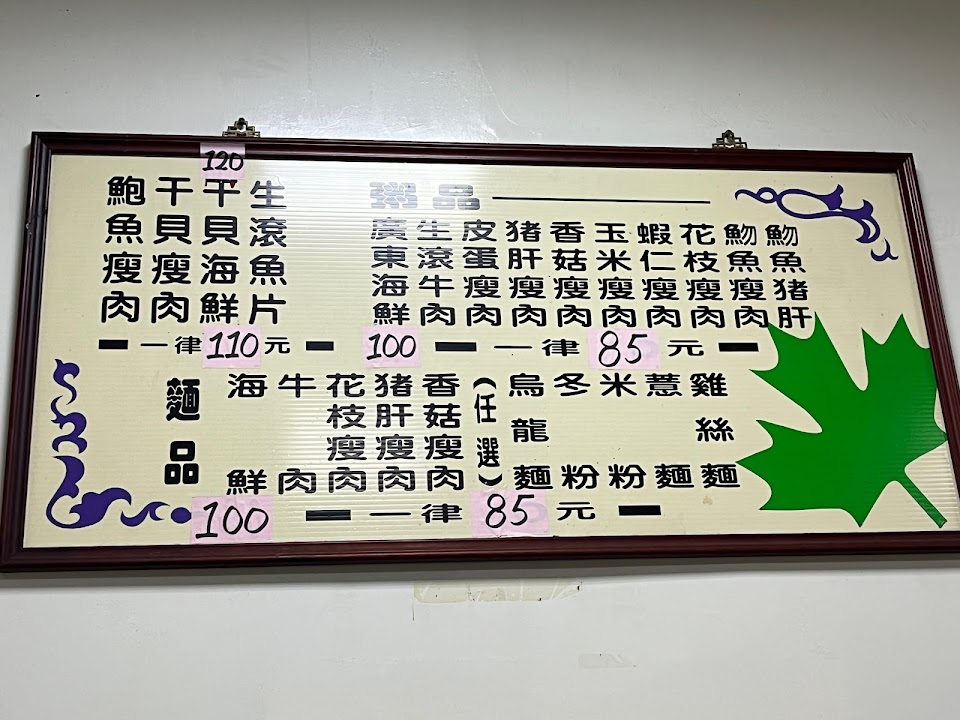 鮑魚瘦肉
干貝瘦肉
120
干貝海鮮
生滾魚片
一律110元
粥品
廣東海鮮
生滾牛肉
皮蛋瘦肉
猪肝瘦肉
香菇瘦肉
玉米瘦肉
蝦仁瘦肉
花枝瘦肉
魩魚瘦肉
魩魚猪肝
100
一律85元
麵品
海鮮
牛肉
花枝瘦肉
猪肝瘦肉
香菇瘦肉
(任選)
烏龍麵
冬粉
米粉
薏麵
雞絲麵
100
一律85元